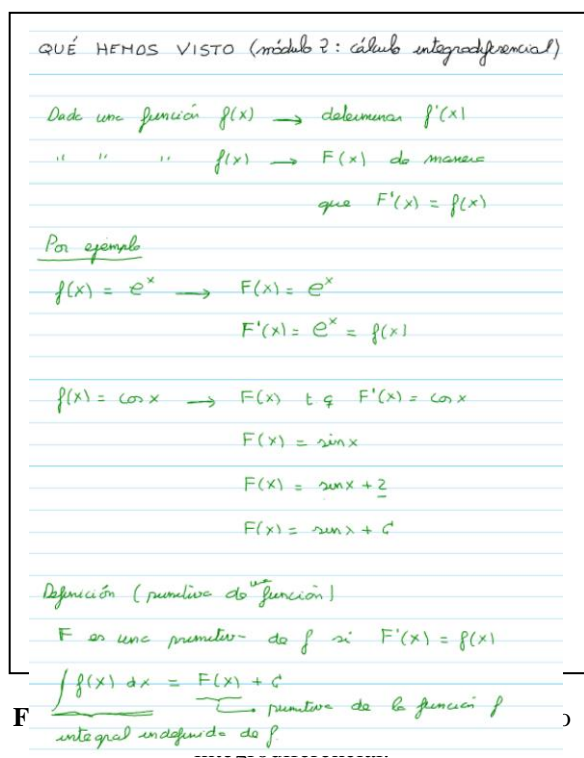 QUÉ HEMOS VISTO (módulo 2: cálculo integrodiferencial)
Dada una función f(x) → determinar f'(x)
" " " f(x) → F(x) de manera
que F'(x) = f(x)
Por ejemplo
f(x) = e^x → F(x) = e^x
F'(x) = e^x = f(x)
f(x) = cos x → F(x) t q F'(x) = cos x
F(x) = sin x
F(x) = sin x + 2
F(x) = sin x + C
Definición (primitiva de una función)
F es una primitiva de f si F'(x) = f(x)
∫ f(x) dx = F(x) + C
primitiva de la función f
integral indefinida de f.
F